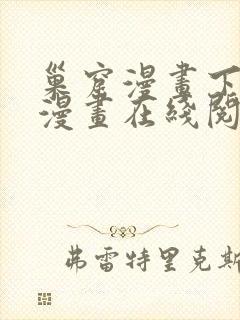 巢窟漫畫下
漫畫在綫閱
弗雷特里克斯